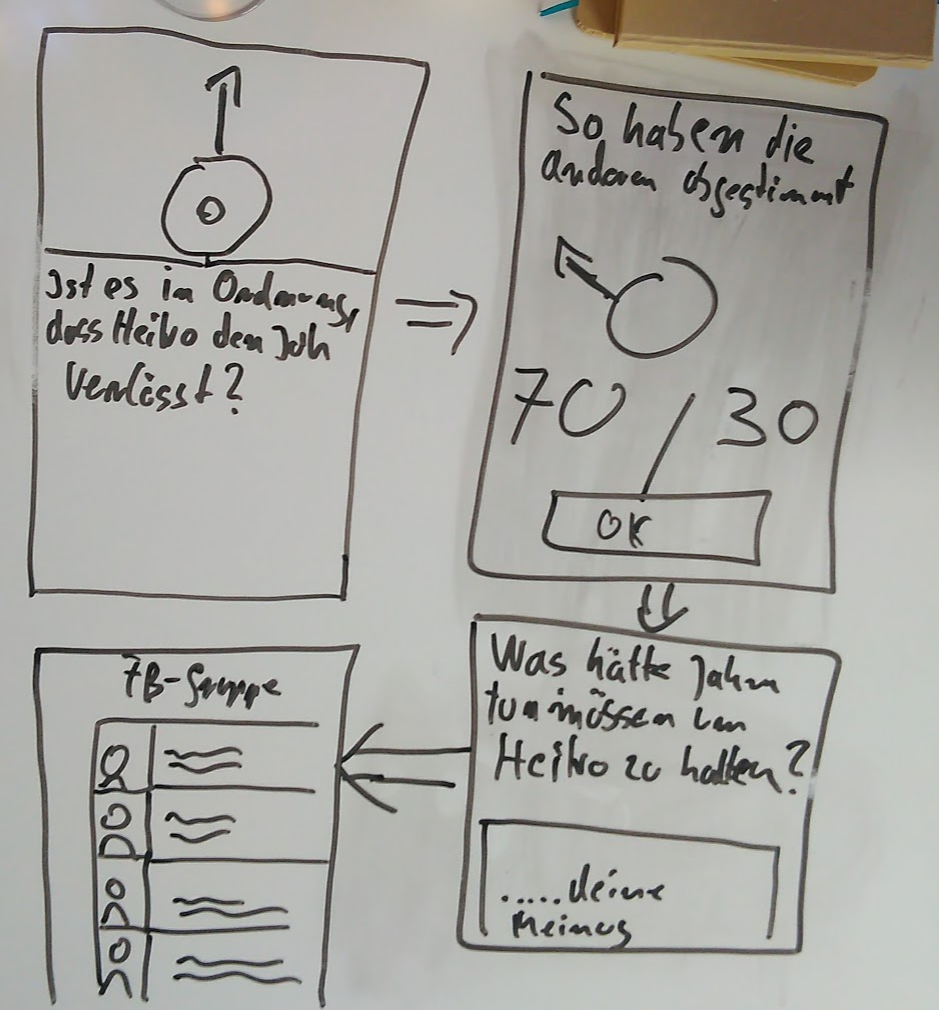 Ist es in Ordnung,
dass Heiko den Jah
verlässt?
So haben die
anderen abgestimmt
70 / 30
OK
Was hätte Jahn
tun müssen um
Heiko zu halten?
......deine
Meinug
FB-Gruppe